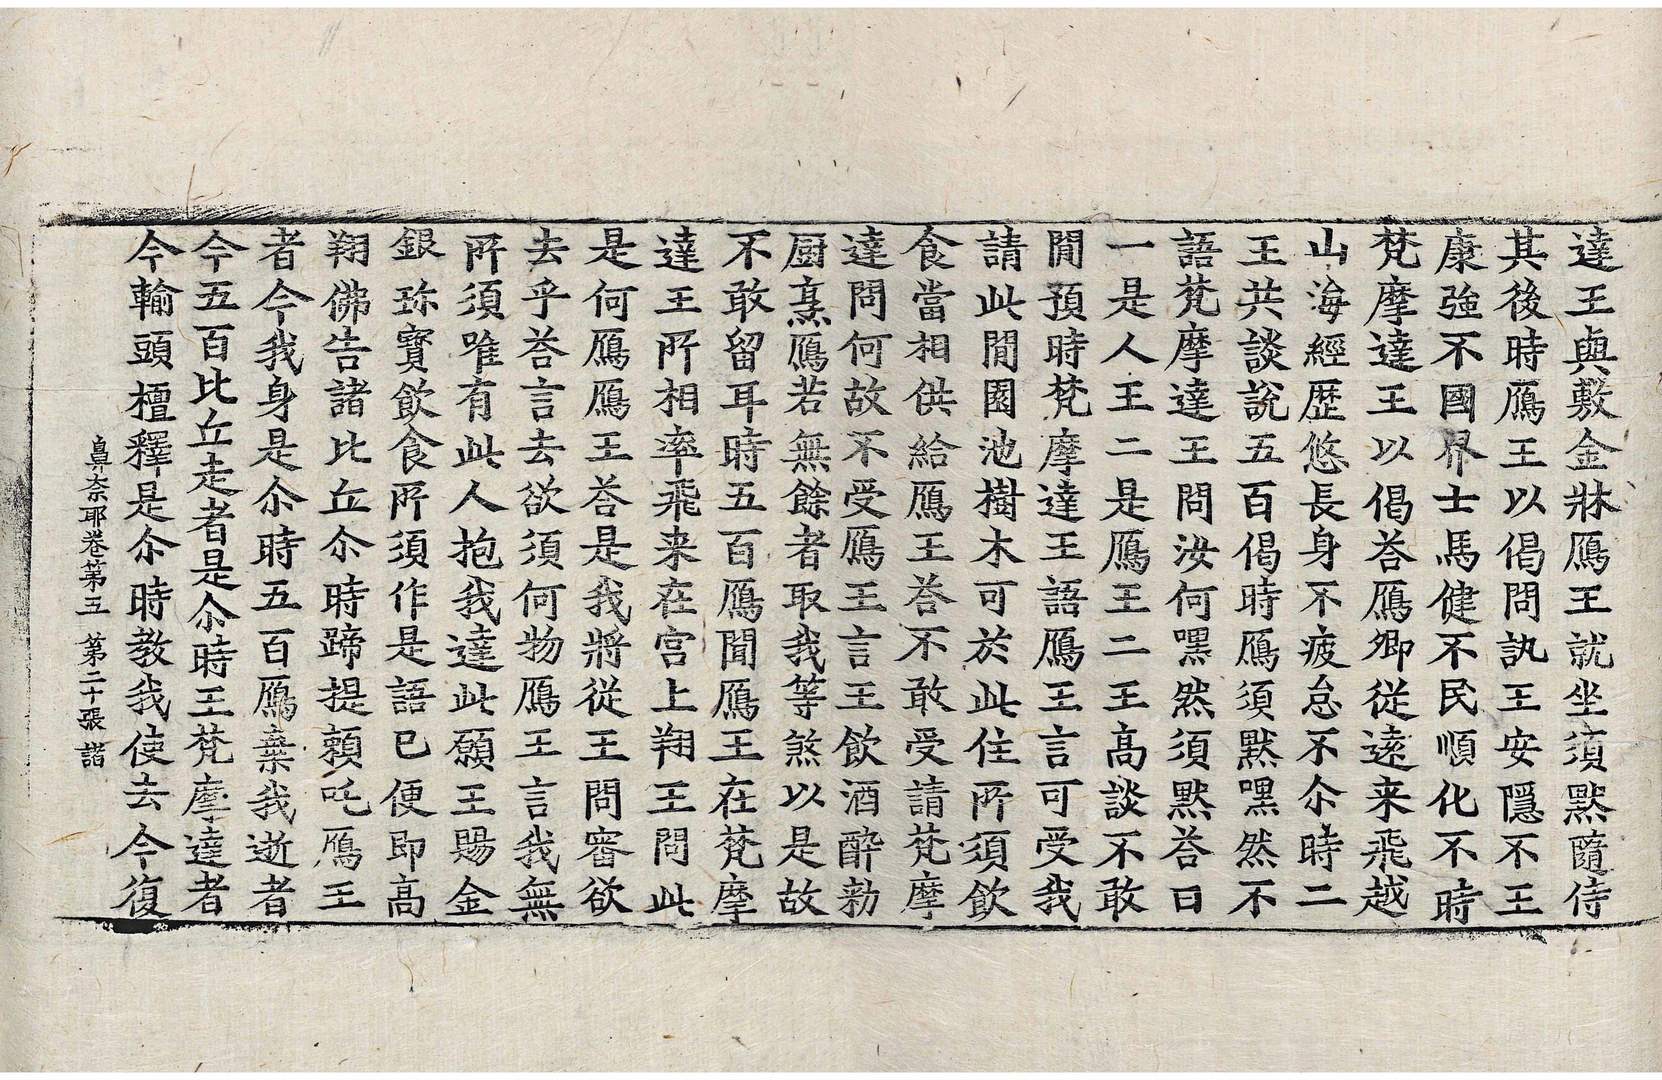 達王與敷金牀鴈王就坐須黙隨侍
其後時鴈王以偈問訊王安隱不王
康強不國界士馬健不民順化不時
梵摩達王以偈荅鴈卿從遠来飛越
山海經歷悠長身不疲怠不尒時二
王共談說五百偈時鴈須黙嘿然不
語梵摩達王問汝何嘿然須黙荅曰
一是人王二是鴈王二王高談不敢
閒預時梵摩達王語鴈王言可受我
請此閒園池樹木可於此住所須飲
食當相供給鴈王荅不敢受請梵摩
達問何故不受鴈王言王飲酒醉勑
厨烹鴈若無餘者取我等煞以是故
不敢留耳時五百鴈聞鴈王在梵摩
達王所相率飛来在宮上翔王問此
是何鴈鴈王荅是我將從王問審欲
去乎荅言去欲須何物鴈王言我無
所須唯有此人抱我達此願王賜金
銀珎寶飲食所須作是語已便即高
翔佛告諸比丘尒時蹄提賴吒鴈王
者今我身是尒時五百鴈棄我逝者
今五百比丘走者是尒時王梵摩達者
今輸頭檀釋是尒時教我使去今復
鼻奈耶卷第五 第二十張 諧